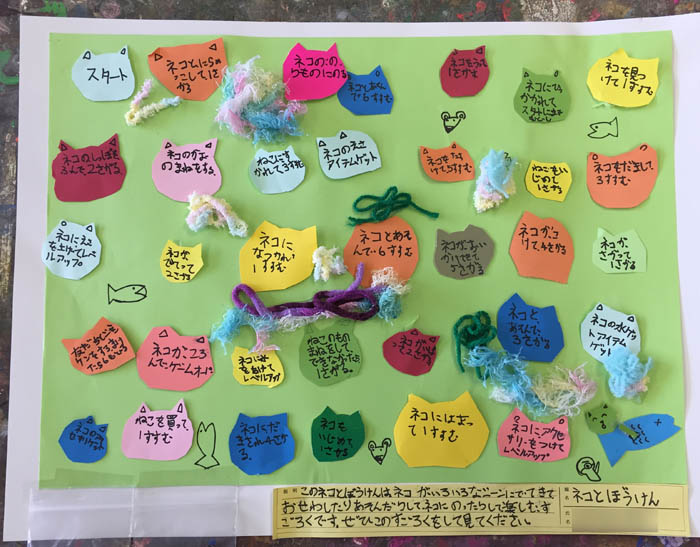 スタート
ネコとにらめ
っこして、1さ
がる
ネコの、の
りものにのる
ネコとあそん
で6すすむ
ネコをうって
1さがる
ネコにひ
っかかれて
ネコを見つ
けて1すすむ
ネコのしっぽを
ふんで2さがる
ネコのかお
のまねをする
ねこにす
かれて3すすむ
ネコのえさ
アイテムゲット
ネコをたす
けて5すすむ
ねこをい
じめて
1さがる
ネコをだまして
3すすむ
ネコにえさ
を上げてレベ
ルアップ
ネコが
でていって
2さがる
ネコに
なつかれ
1すすむ
ネコとあそ
んで・6すすむ
ネコがおい
かけてきて
5さがる
ネコが、
さがって
1さがる
ネコがころ
んでゲームオーバ
レベルアップ
ねこのもの
まねをして
できなかったら
1さがる。
ネコと
あそんで、
3さがる
ネコの水ゲッ
トアイテム
ゲット
ねこを買って
1すすむ
ネコにだ
まされ4さがる
ネコを
いじめて
1さがる
ネコにはまっ
て1すすむ
ネコにアクセ
サリーをつけて
レベルアップ
このネコとぼうけんは、ネコがいろいろなシーンにでてきて
おせわしたりあそんだりして、ネコにのったりして楽しむす
ごろくです。ぜひこのすごろくをして見てください。
題名
ネコとぼうけん